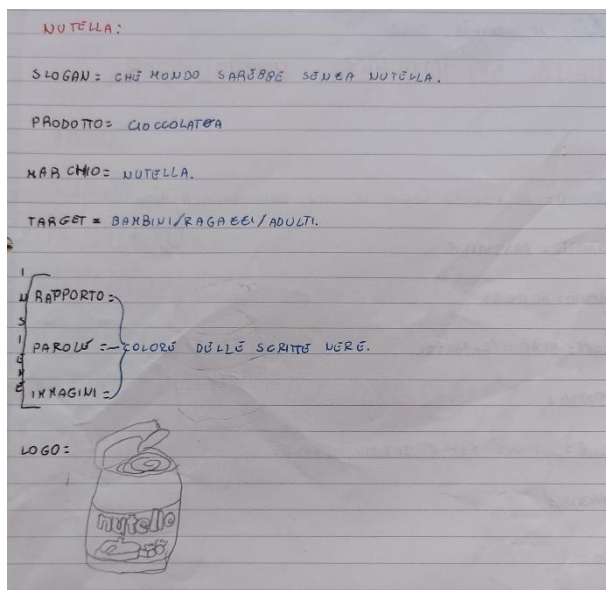 NUTELLA:
SLOGAN= CHE MONDO SAREBBE SENZA NUTELLA.
PRODOTTO= CIOCCOLATA
MARCHIO= NUTELLA.
TARGET= BAMBINI/RAGAZZI/ADULTI.
INSIEME
RAPPORTO=
PAROLE=-COLORE DELLE SCRITTE NERE.
IMMAGINI=
LOGO:
nutella